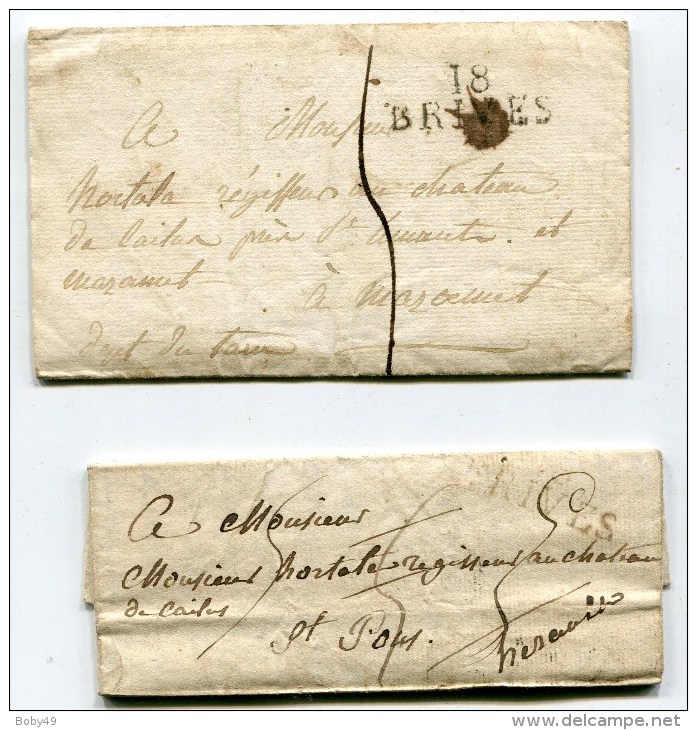 18
BRIVES
A Monsieur
hortala régisseur au chateau
de Cailus près St Amant et
mazamet
à Mazamet
dept du tarn
BRIVES
A Monsieur
Monsieur hortala regisseur au chateau
de Cailus
St Pons.
herault
Boby49
www.delcampe.net